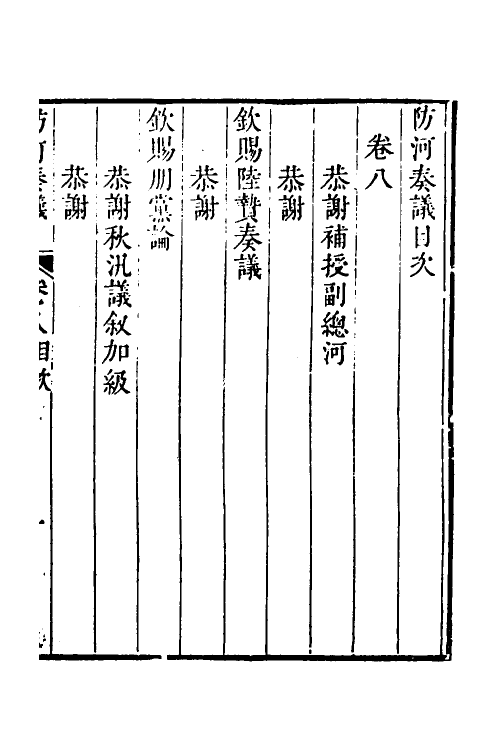 防河奏議目次
卷八
恭謝補授副總河
恭謝
欽賜陸贄奏議
恭謝
欽賜朋黨論
恭謝秋汛議叙加級
恭謝
防河奏議 卷八目次